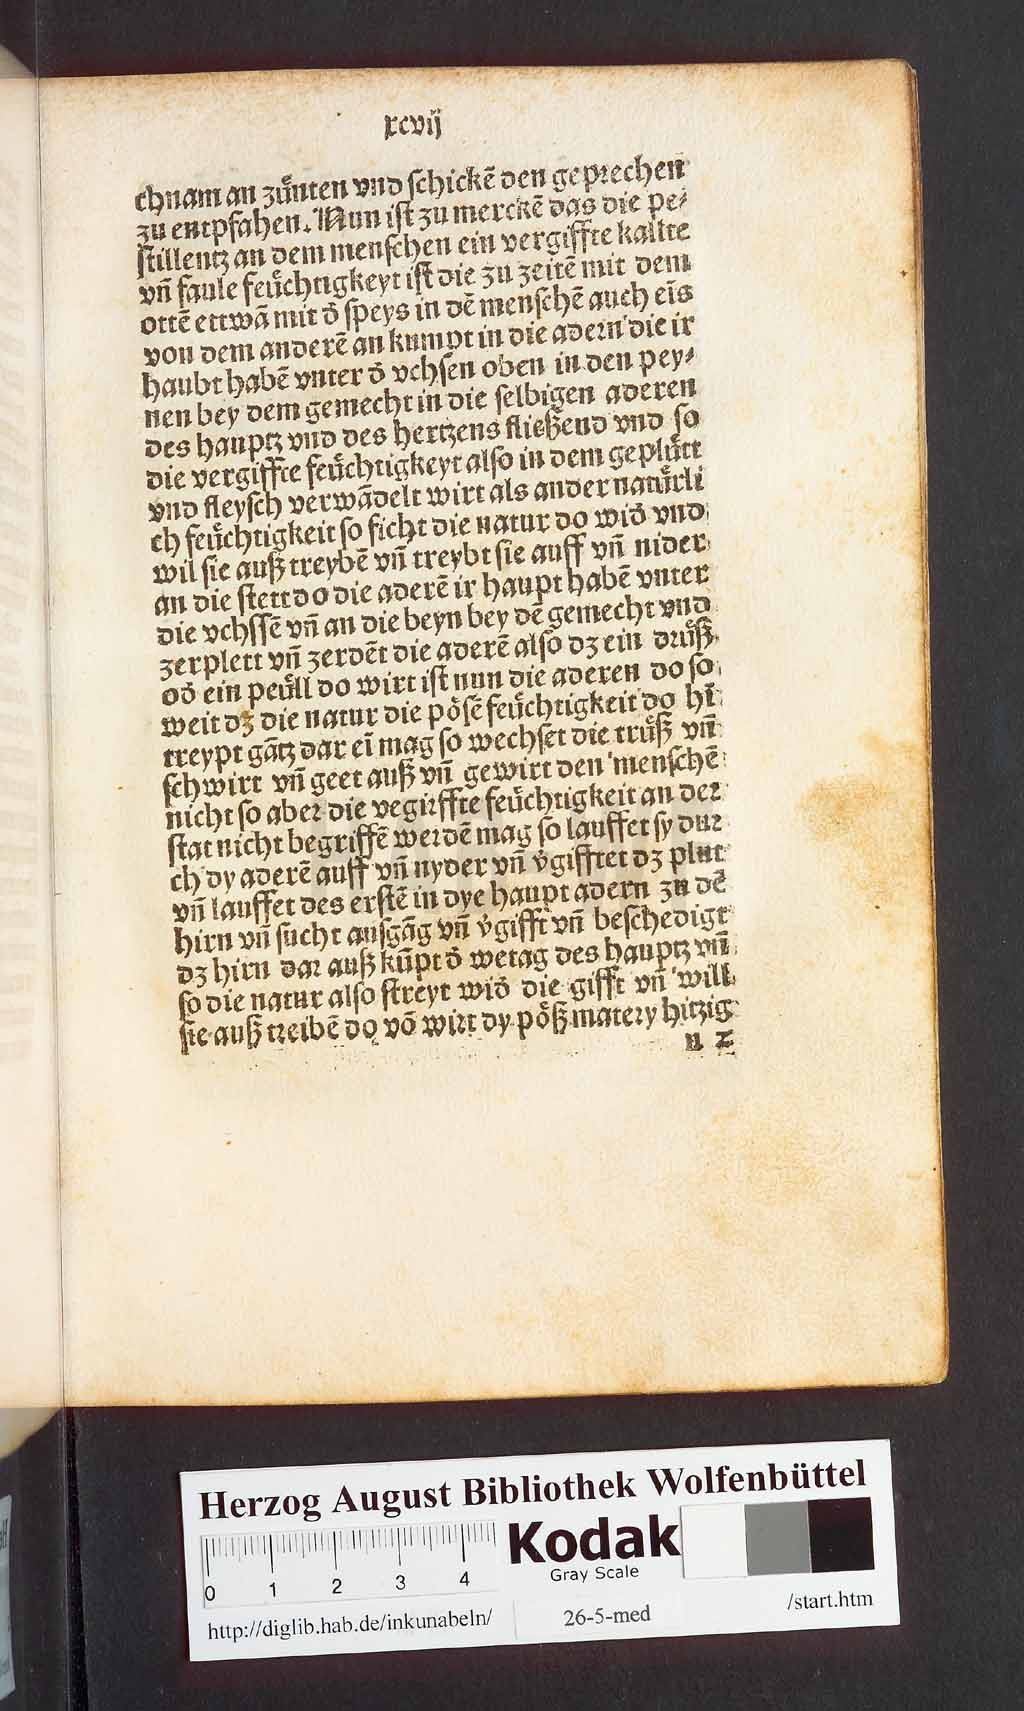 xcvij
chnam an zuͤnten vnd ſchickẽ den geprechen
zu entpfahen. Nun iſt zu merckẽ das die pe⸗
ſtillentz an dem menſchen ein vergiffte kallte
vñ faule feuͤchtigkeyt iſt die zu zeitẽ mit dem
ottẽ ettwã mit d̕ ſpeys in dẽ menſchẽ auch eĩs
von dem anderẽ an kumpt in die adern die ir
haubt habẽ vnter d̕ vchſen oben in den pey⸗
nen bey dem gemecht in die ſelbigen aderen
des hauptz vnd des hertzens fließend vnd ſo
die vergiffte feuͤchtigkeyt alſo in dem gepluͤtt
vnd fleyſch verwãdelt wirt als ander natuͤrli
ch feuͤchtigkeit ſo ficht die natur do wid̕ vnd
wil ſie auß treybẽ vñ treybt ſie auff vñ nider
an die ſtett do die aderẽ ir haupt habẽ vnter
die vchſſẽ vñ an die beyn bey dẽ gemecht vnd
zerplett vñ zerdẽt die aderẽ alſo dz ein druͤß
od̕ ein peuͤll do wirt iſt nun die aderen do ſo
weit dz die natur die poͤſẽ feuͤchtigkeit do hĩ
treypt gãtz dar eĩ mag ſo wechſet die truͤß vñ
ſchwirt vñ geet auß vñ gewirt den menſchẽ
nicht ſo aber die vegirffte feuͤchtigkeit an der
ſtat nicht begriffẽ werdẽ mag ſo lauffet ſy dur
ch dy aderẽ auff vñ nyder vñ v̕gifftet dz plut
vñ lauffet des erſtẽ in dye haupt adern zu dẽ
hirn vñ ſucht auſgãg vñ v̕gifft vñ beſchedigt
dz hirn dar auß kũpt d̕ wetag des hauptz vñ
ſo die natur alſo ſtreyt wid̕ die gifft vñ will
ſie auß treibẽ do võ wirt dy poͤß matery hitzig
n 2
Herzog August Bibliothek Wolfenbüttel
Kodak
Gray Scale
0 1 2 3 4
http://diglib.hab.de/inkunabeln/
26-5-med
/start.htm